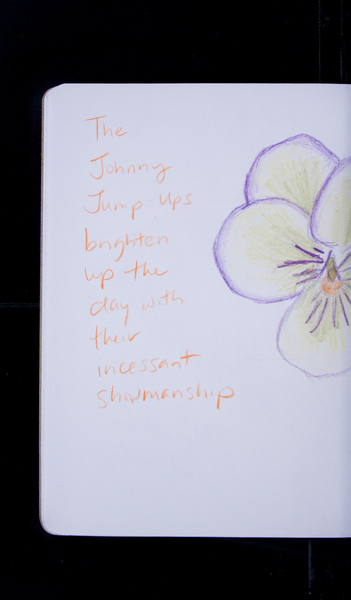 The
Johnny
Jump-Ups
brighten
up the
day with
their
incessant
showmanship